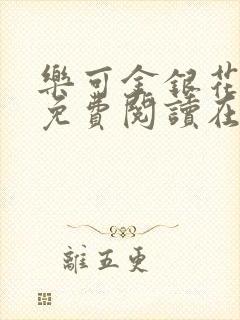 樂可金銀花
免費閱讀在
離五更